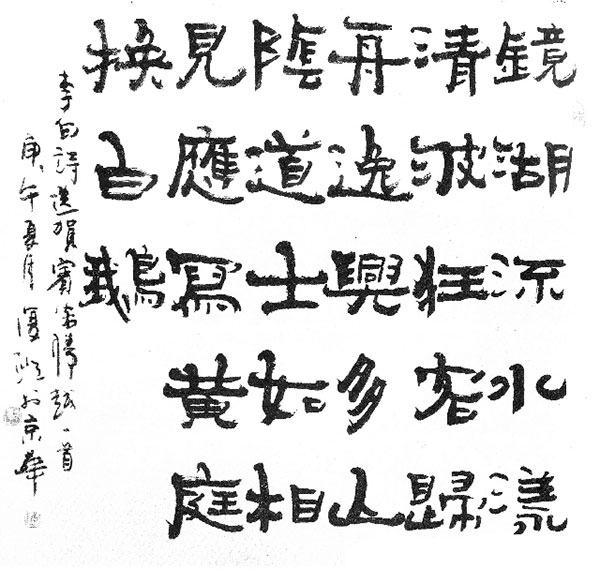 鏡湖流水漾
清波狂客歸
舟逸興多山
陰道士如相
見應寫黃庭
換白鵝
李白詩送賀賓客歸越一首
庚午夏月 於京華